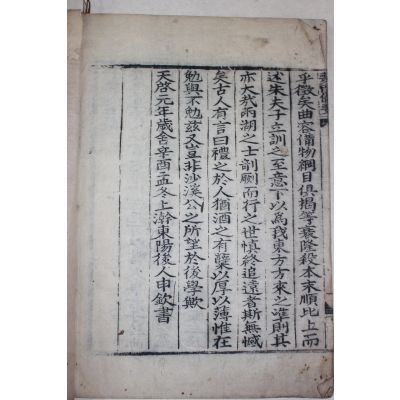 乎徵矣曲容備物綱目俱揭等衰隆殺本末順比上而
述朱夫子立訓之至意下以為我東方方來之準則其
亦大哉兩湖之士剞劂而行之世慎終追遠者斯無憾
矣古人有言曰禮之於人猶酒之有糵以厚以薄惟在
勉與不勉茲又豈非沙溪公之所望於後學歟
天啓元年歲舍辛酉孟冬上澣東陽後人申欽書